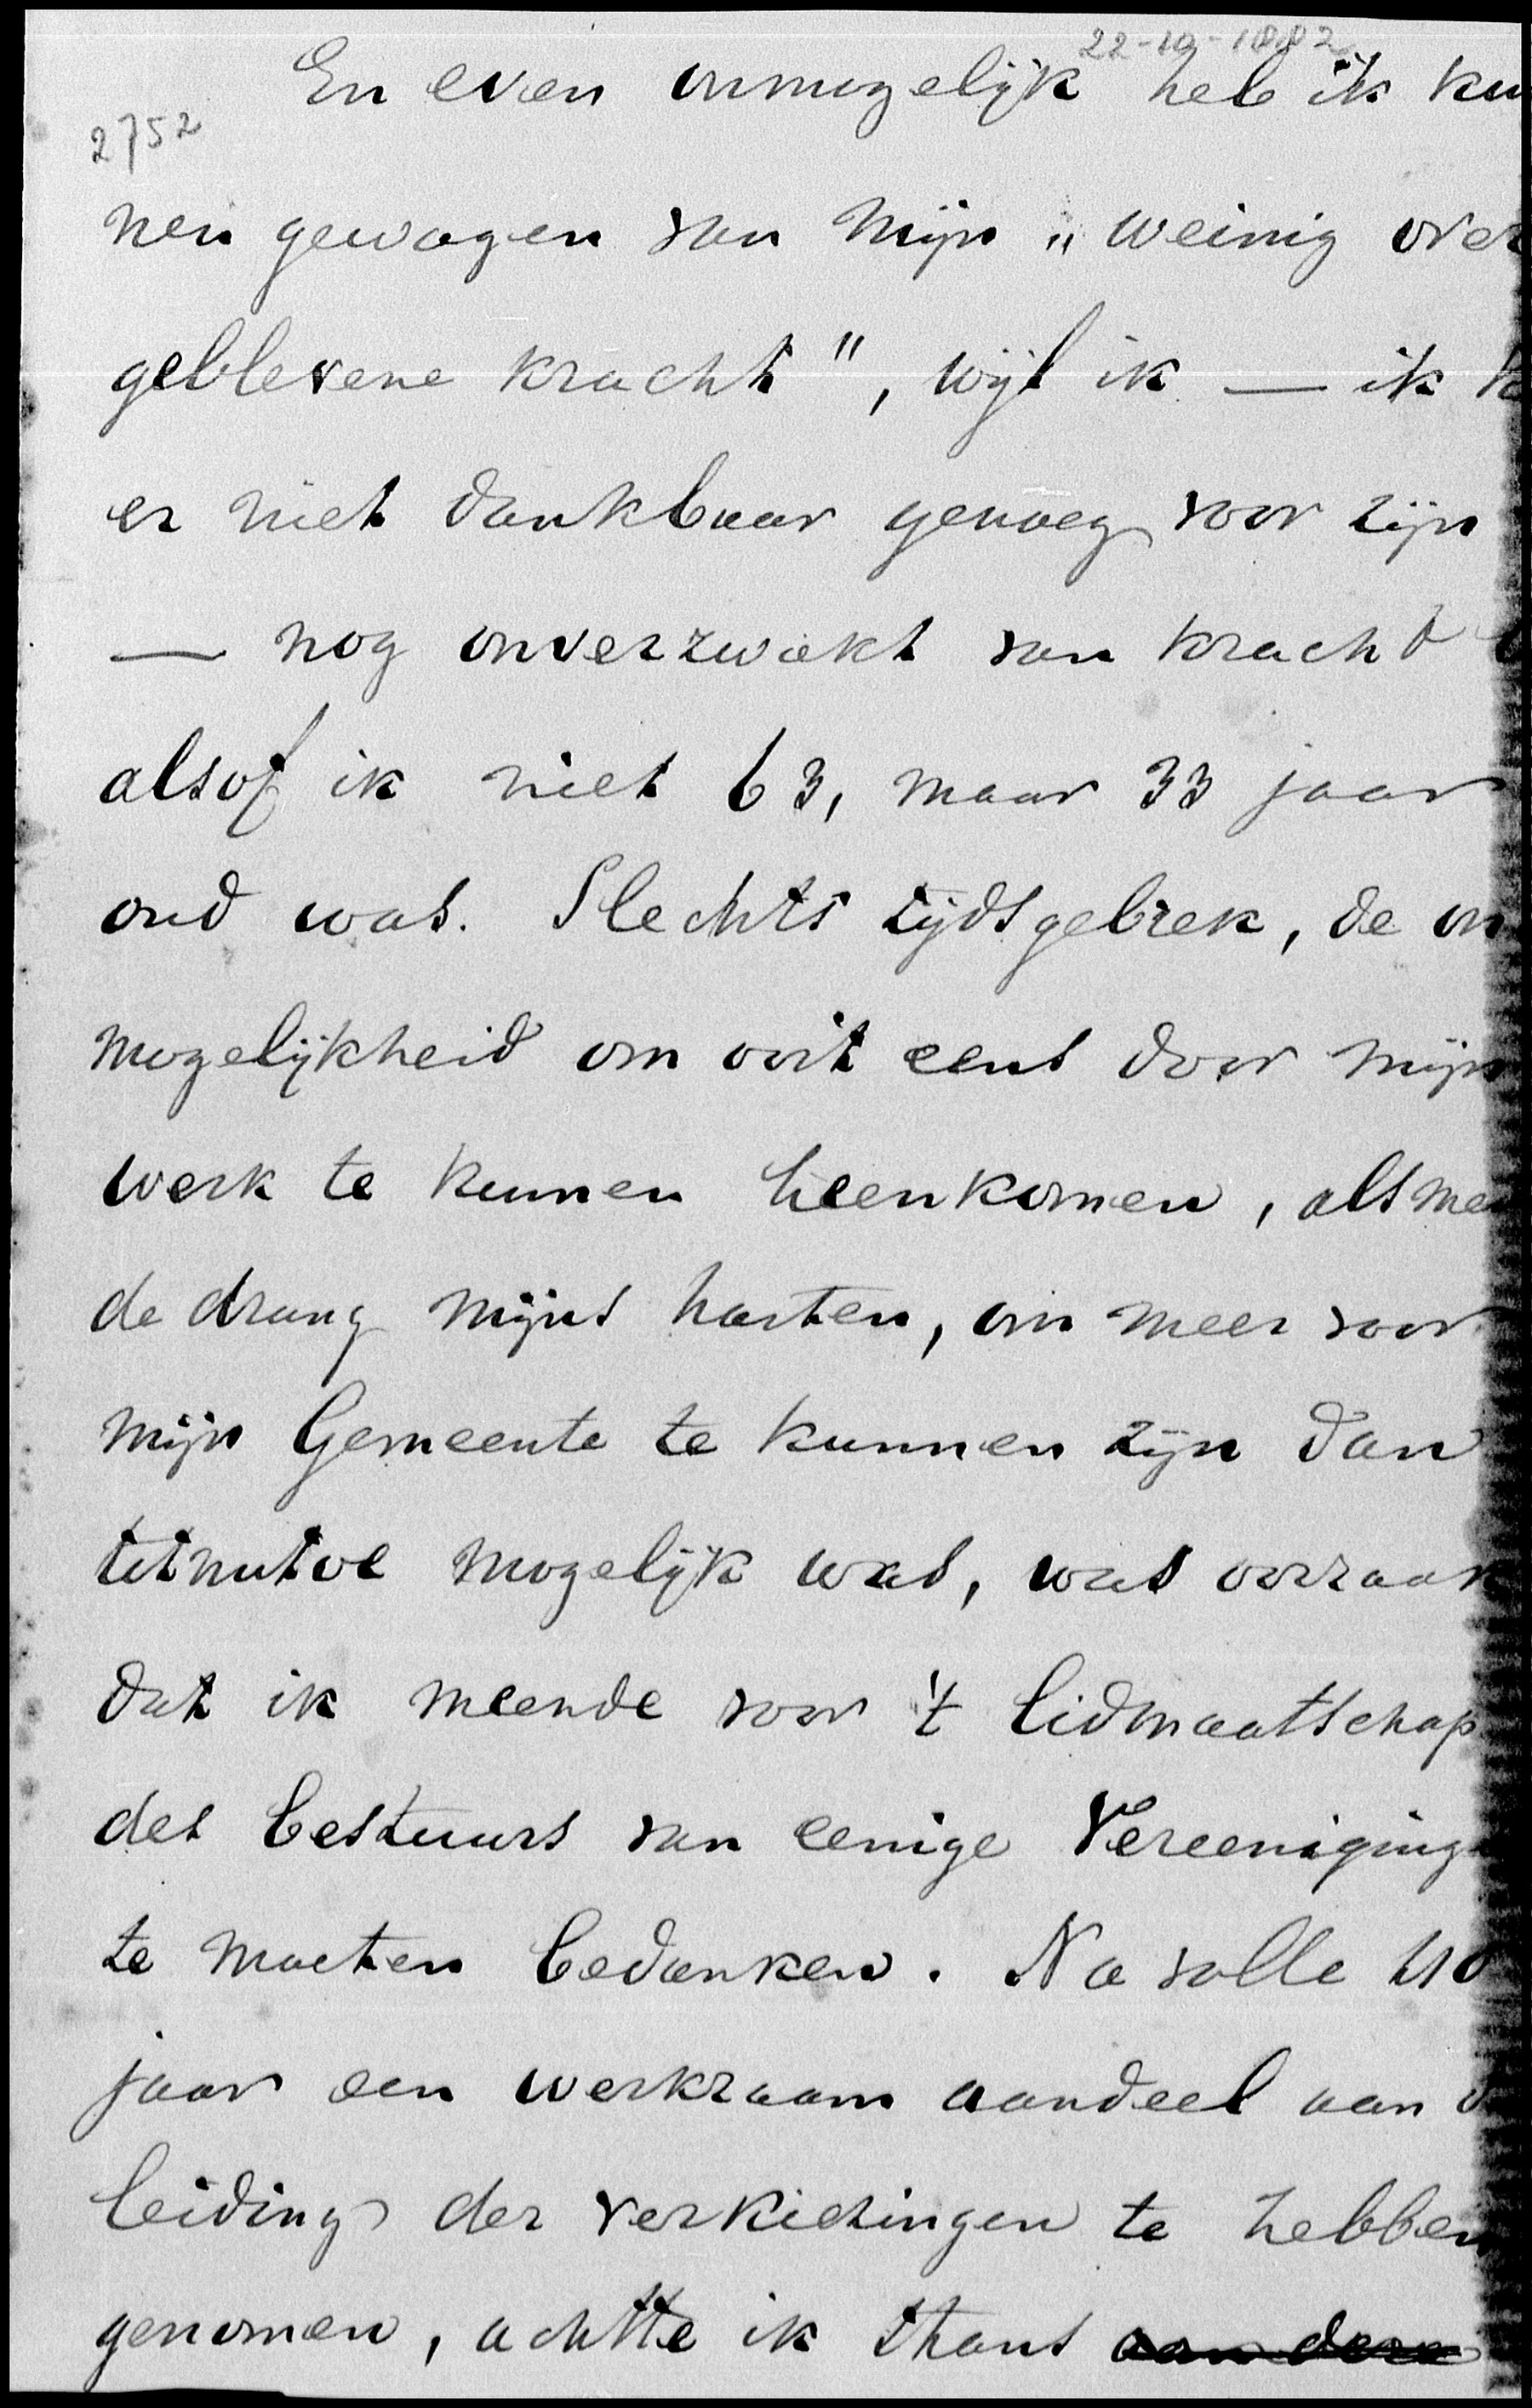 22-10-1882
En even onmogelijk heb ik kun
2752
nen gewagen van mijn „weinig over
geblevene kracht", wijl ik — ik k
er niet dankbaar genoeg voor zijn
— nog onverzwakt van kracht b
alsof ik niet 63, maar 33 jaar
oud was. Slechts tijdsgebrek, de on
mogelijkheid om ooit eens door mijn
werk te kunnen heenkomen, alsmee
de drang mijns harten, om meer voor
mijn Gemeente te kunnen zijn dan
totnutoe mogelijk was, was oorzaak
dat ik meende voor 't lidmaatschap
des bestuurs van eenige Vereeniging
te moeten bedanken. Na volle 40
jaar een werkzaam aandeel aan d
leiding der verkiezingen te hebben
genomen, achtte ik thans aan deze